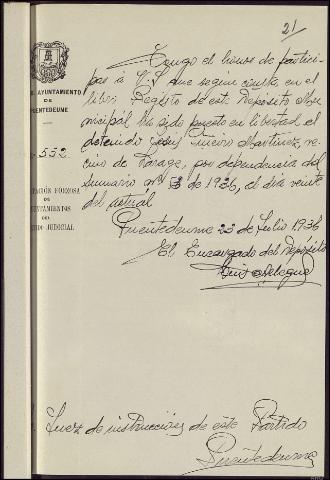 21
AYUNTAMIENTO
DE
PUENTEDEUME
552
AGRUPACIÓN FORZOSA
DE
AYUNTAMIENTOS
DEL
PARTIDO JUDICIAL
Tengo el honor de partici-
par á V.S. que segun consta, en el
libro Registro de este Depósito Mu-
nicipal ha sido puesto en libertad el
detenido José Martinez, ve-
cino de por dependencia del
sumario nº 3 de 1936, el día veinte
del actual
Puentedeume 23 de Julio 1936
El Encargado del Depósito
Luis
Juez de instrucción de este Partido
Puentedeume